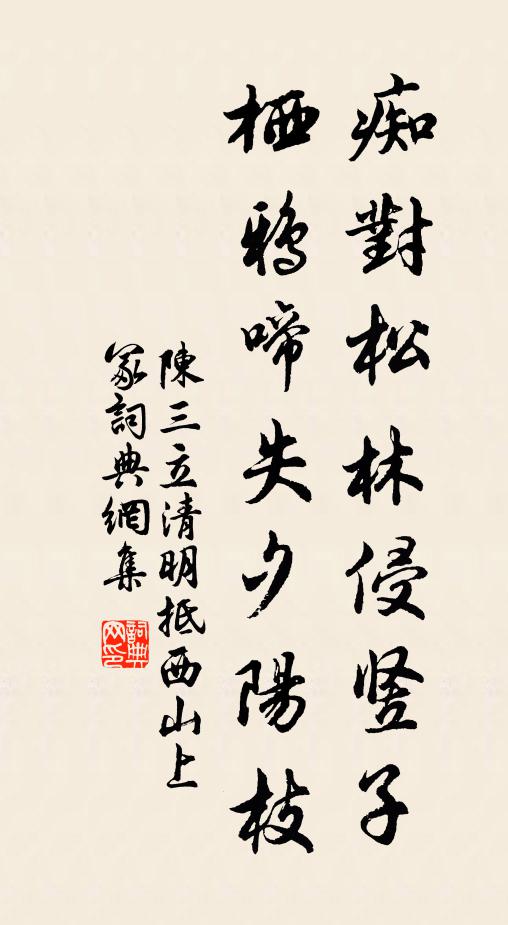 痴對松林侵竖子
栖鴉啼失夕陽枝
陳三立清明抵西山上
冢詞典網集
詞典網印